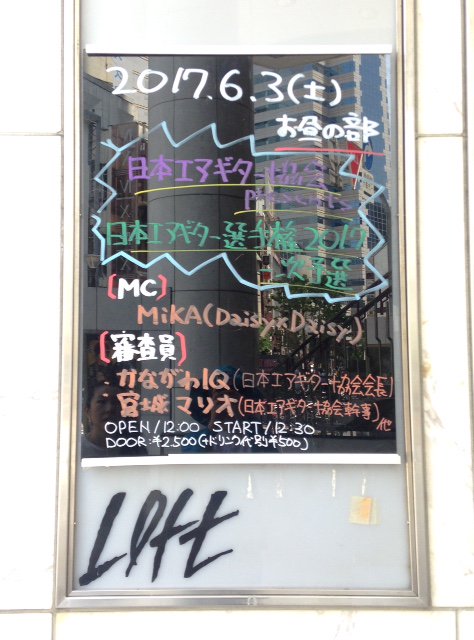 2017.6.3(土)
お昼の部
日本エアギター協会
presents
日本エアギター選手権2017
次予選
[MC]
MiKA(Daisy×Daisy)
[審査員]
・かながわIQ(日本エアギター協会会長)
・宮城マリオ(日本エアギター協会幹事)他
OPEN/12:00 START/12:30
DOOR:¥2,500(+ドリンク代別¥500)
Loft